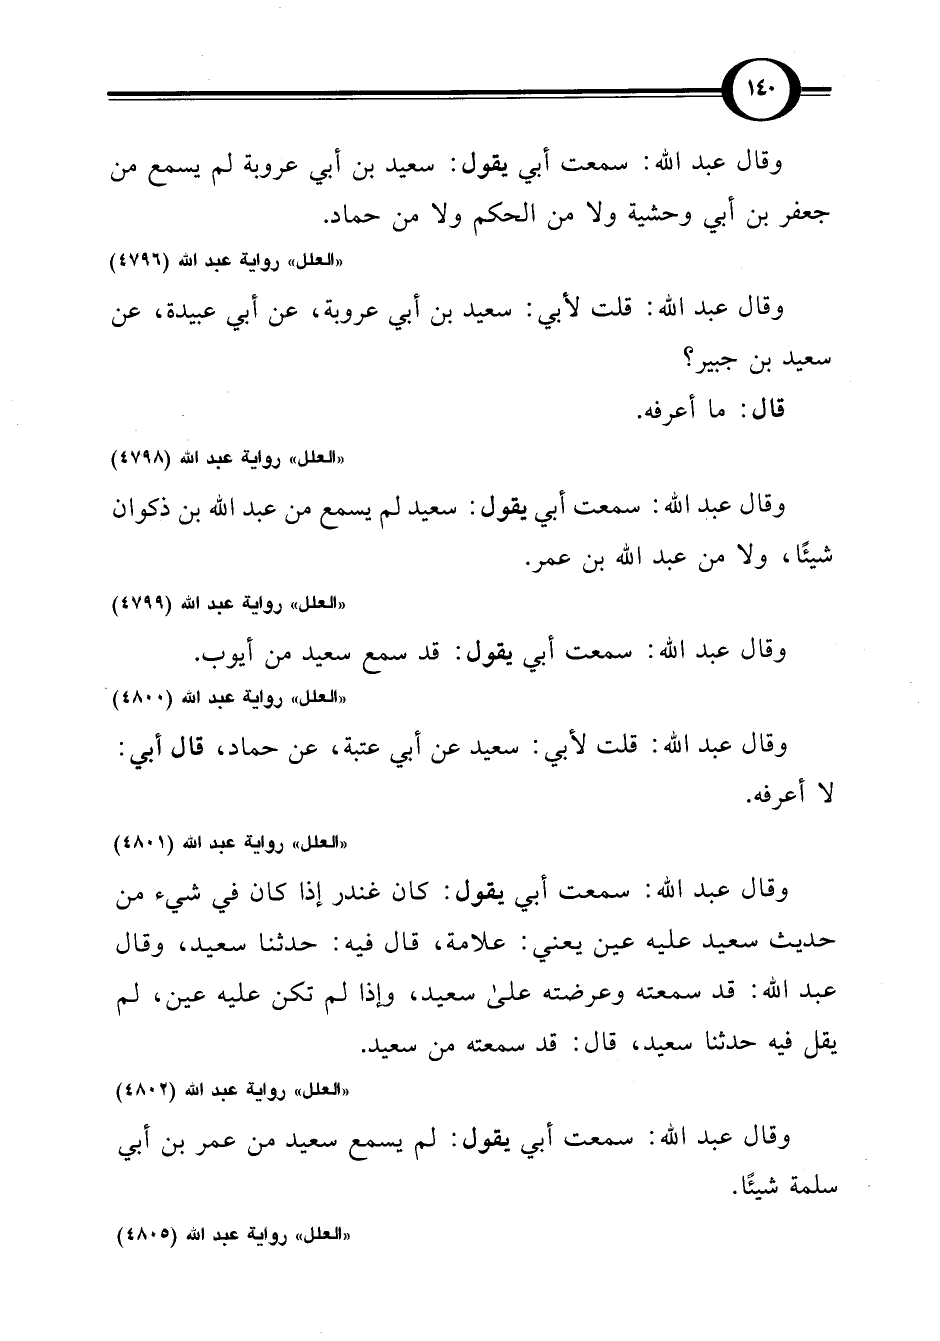 ١٤٠
وقال عبد الله: سمعت أبي يقول: سعيد بن أبي عروبة لم يسمع من
جعفر بن أبي وحشية ولا من الحكم ولا من حماد.
«العلل» رواية عبد الله (٤٧٩٦)
وقال عبد الله: قلت لأبي: سعيد بن أبي عروبة، عن أبي عبيدة، عن
سعيد بن جبير؟
قال: ما أعرفه.
«العلل» رواية عبد الله (٤٧٩٨)
وقال عبد الله: سمعت أبي يقول: سعيد لم يسمع من عبد الله بن ذكوان
شيئًا، ولا من عبد الله بن عمر.
«العلل» رواية عبد الله (٤٧٩٩)
وقال عبد الله: سمعت أبي يقول: قد سمع سعيد من أيوب.
«العلل» رواية عبد الله (٤٨٠٠)
وقال عبد الله: قلت لأبي: سعيد عن أبي عتبة، عن حماد، قال أبي:
لا أعرفه.
«العلل» رواية عبد الله (٤٨٠١)
وقال عبد الله: سمعت أبي يقول: كان غندر إذا كان في شيء من
حديث سعيد عليه عين يعني: علامة، قال فيه: حدثنا سعيد، وقال
عبد الله: قد سمعته وعرضته علىٰ سعيد، وإذا لم تكن عليه عين، لم
يقل فيه حدثنا سعيد، قال: قد سمعته من سعيد.
«العلل» رواية عبد الله (٤٨٠٢)
وقال عبد الله: سمعت أبي يقول: لم يسمع سعيد من عمر بن أبي
سلمة شيئًا.
«العلل» رواية عبد الله (٤٨٠٥)